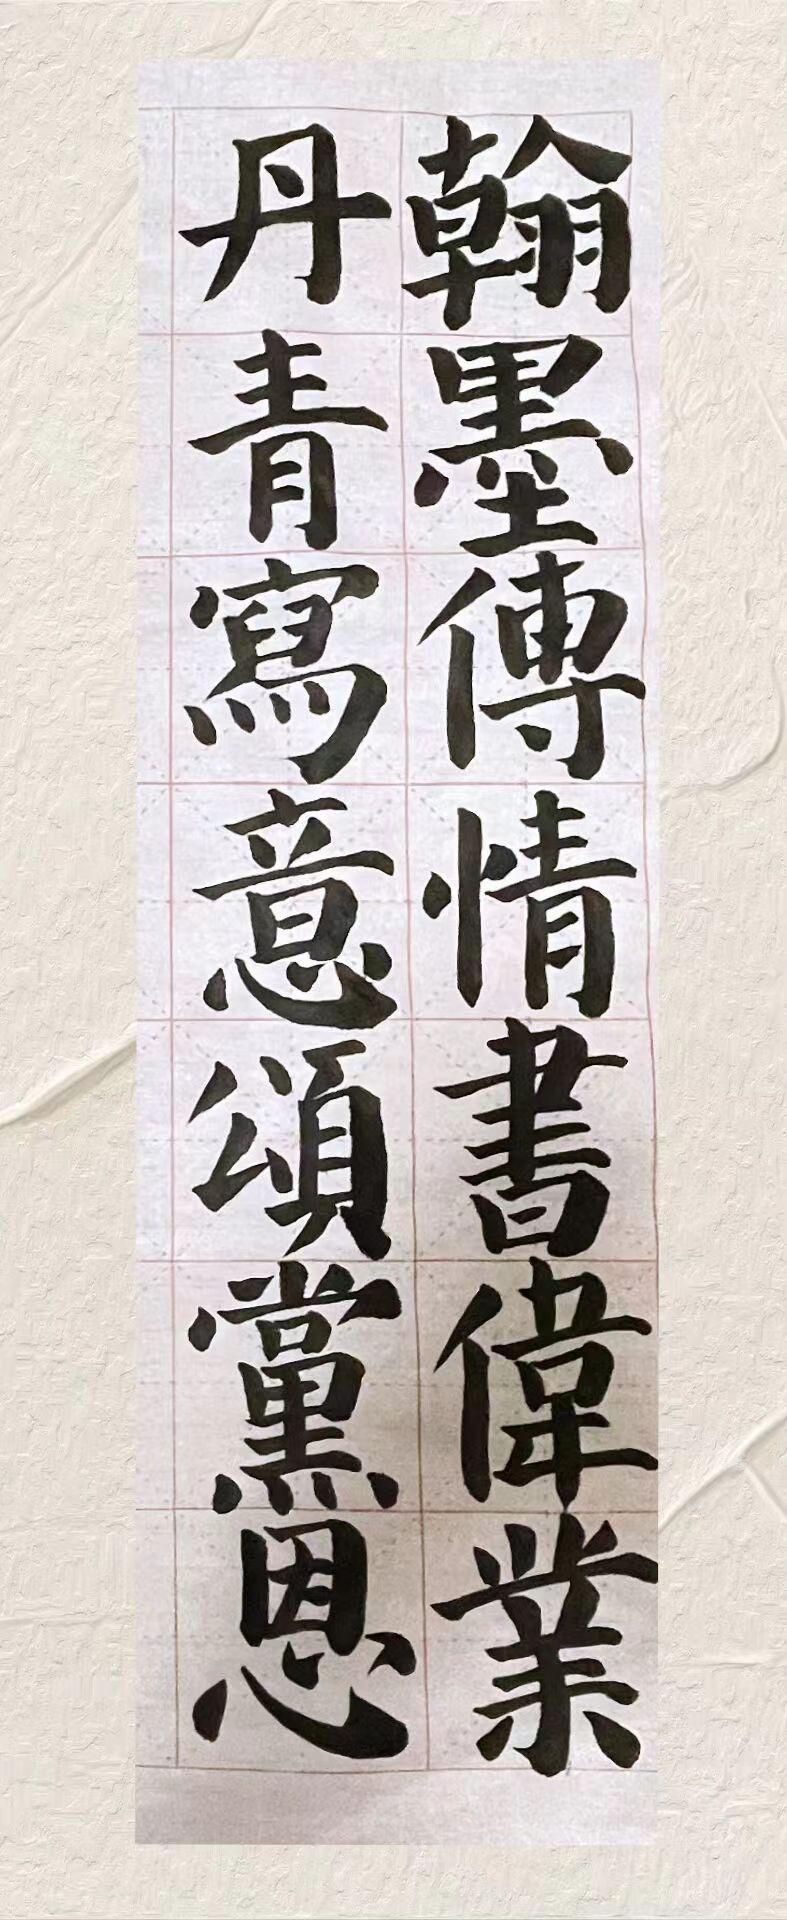 翰墨傳情書偉業
丹青寫意頌黨恩